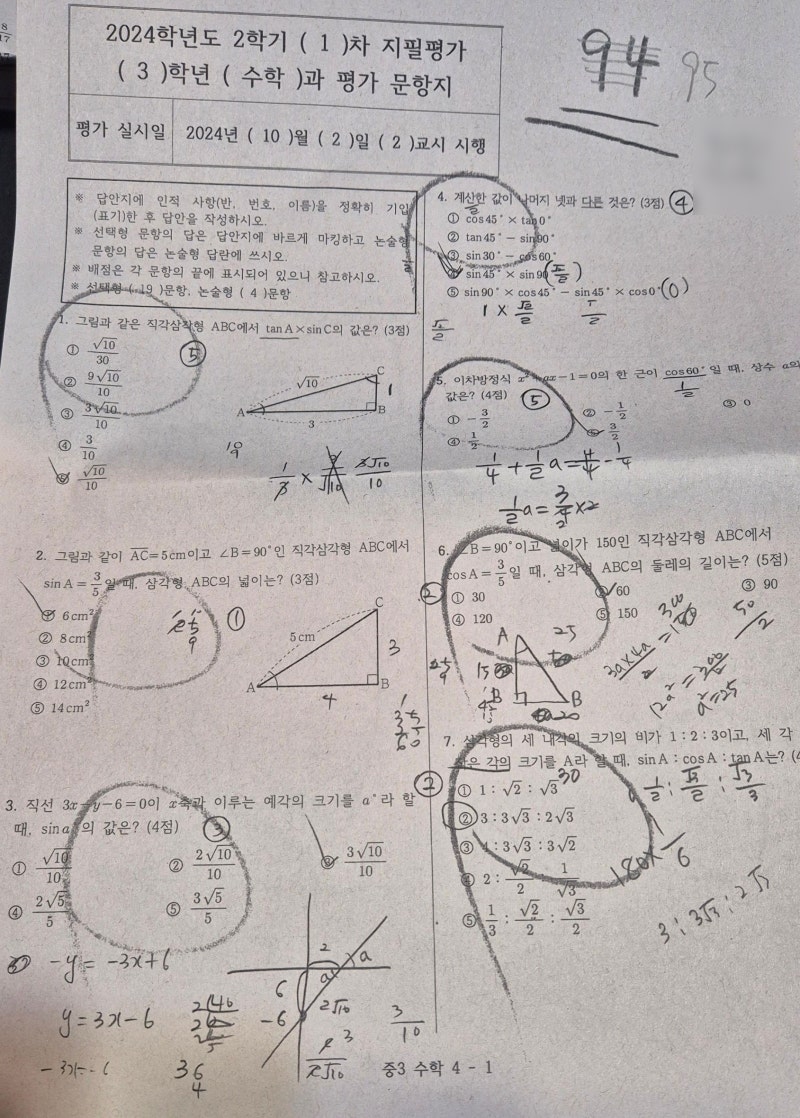 2024학년도 2학기 ( 1 )차 지필평가
( 3 )학년 ( 수학 )과 평가 문항지
평가 실시일 2024년 ( 10 )월 ( 2 )일 ( 2 )교시 시행
94 95
※ 답안지에 인적 사항(반, 번호, 이름)을 정확히 기입
(표기)한 후 답안을 작성하시오.
※ 선택형 문항의 답은 답안지에 바르게 마킹하고 논술형
문항의 답은 논술형 답란에 쓰시오.
※ 배점은 각 문항의 끝에 표시되어 있으니 참고하시오.
※ 선택형 ( 19 )문항, 논술형 ( 4 )문항
1. 그림과 같은 직각삼각형 ABC에서 tanA×sinC의 값은? (3점)
① √10/30
⑤
② 9√10/10
③ 3√10/10
④ 3/10
⑤ √10/10
√10
A
B
C
3
1
10
9
1/3 × 3/√10 3√10/10
2. 그림과 같이 AC=5cm이고 ∠B=90°인 직각삼각형 ABC에서
sinA=3/5일 때, 삼각형 ABC의 넓이는? (3점)
① 6cm²
①
② 8cm²
③ 10cm²
④ 12cm²
⑤ 14cm²
5cm
A
B
C
3
4
3. 직선 3x-y-6=0이 x축과 이루는 예각의 크기를 a°라 할
때, sina°의 값은? (4점)
③
① √10/10
② 2√10/10
③ 3√10/10
④ 2√5/5
⑤ 3√5/5
-y = -3x+6
y = 3x-6
-3x=-6
36
4
2
a
a
6
-6
2√10
3/10
4. 계산한 값이 나머지 넷과 다른 것은? (3점) ④
① cos45°×tan0°
② tan45°-sin90°
③ sin30°-cos60°
④ sin45°×sin90° (√2/2)
⑤ sin90°×cos45°-sin45°×cos0° (0)
√2/2
1×√2/2
5. 이차방정식 x²+ax-1=0의 한 근이 cos60°일 때, 상수 a의
값은? (4점)
⑤
1/2
① -3/2
② -1/2
③ 0
④ 1/2
⑤ 3/2
1/4 + 1/2a = 4/4 - 1/4
1/2a = 3/4 ×2
6. ∠B=90°이고 넓이가 150인 직각삼각형 ABC에서
cosA=3/5일 때, 삼각형 ABC의 둘레의 길이는? (5점)
②
① 30
② 60
③ 90
④ 120
⑤ 150
A
25
15
B
B
20
3a×4a/2=150
300
12a²=300
a²=25
50/2
7. 삼각형의 세 내각의 크기의 비가 1:2:3이고, 세 각
작은 각의 크기를 A라 할 때, sinA:cosA:tanA는?
②
① 1:√2:√3
30
1/2 : √3/2 : √3/3
② 3:3√3:2√3
③ 4:3√3:3√2
④ 2:√2/2 1/√3
⑤ 1/3:√2/2:√3/2
180×1/6
3:3√3:2√3
중3 수학 4 - 1